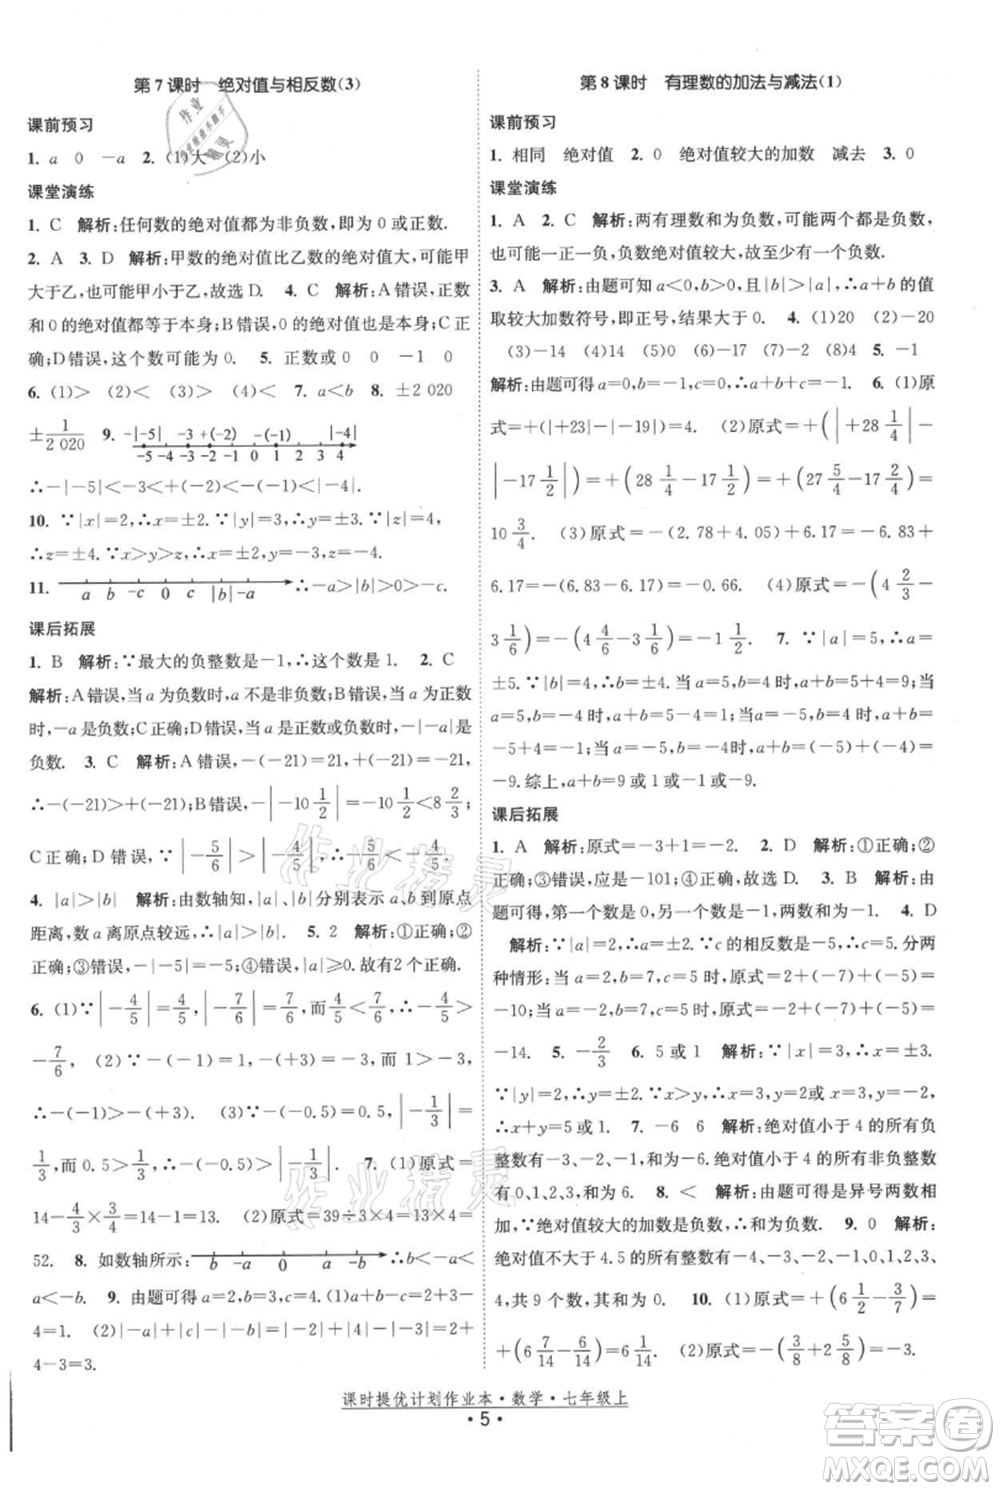 第7课时　绝对值与相反数(3)
课前预习
1. a　0　-a　2. (1)大　(2)小
课堂演练
1. C　解析:任何数的绝对值都为非负数,即为0或正数.
2. A　3. D　解析:甲数的绝对值比乙数的绝对值大,可能甲
大于乙,也有可能甲小于乙,故选D.　4. C　解析:A错误,正数
和0的绝对值都等于本身;B错误,0的绝对值是本身;C正
确;D错误,这个数可能为0.　5. 正数或0　0　-1　0
6. (1)>　(2)<　(3)>　(4)>　7. a<b　8. ±2 020
±1/2 020　9. -|-5|　-3　+(-2)　-(-1)　|-4|
-5 -4 -3 -2 -1 0 1 2 3 4 5
∴-|-5|<-3<+(-2)<-(-1)<|-4|.
10. ∵|x|=2,∴x=±2.∵|y|=3,∴y=±3.∵|z|=4,
∴z=±4.∵x>y>z,∴x=±2,y=-3,z=-4.
11. a b -c 0 c |b| -a ∴-a>|b|>0>-c.
课后拓展
1. B　解析:∵最大的负整数是-1,∴这个数是-1.　2. C
解析:A错误,当a为负数时,-a不是非负数;B错误,当a为0时,
-a为0;C正确;D错误,当a是正数或负数时,-|a|是
负数.　3. C　解析:A错误,-(-21)=21,+(-21)=-21,
∴-(-21)>+(-21);B错误,-|-10 1/2|=-10 1/2<8 2/3;
C正确;D错误,∵|-5/6|>|-4/5|,∴-5/6<-4/5.
4. |a|>|b|　解析:由数轴知,|a|、|b|分别表示a、b到原点
距离,数a离原点较远,∴|a|>|b|.　5. 2　解析:①正确;②
正确;③错误,-|-5|=-5;④错误,|a|≥0.故有2个正确.
6. (1)∵|-4/5|=4/5,|-7/6|=7/6,而4/5<7/6,∴-4/5>
-7/6.　(2)∵-(-1)=1,+(-2)=-2,而1>-2,
∴-(-1)>+(-2).　(3)∵-(-0.5)=0.5,|-1/3|=
1/3,而0.5>1/3,∴-(-0.5)>|-1/3|.　7. (1)原式=
14-4/3×3/4=14-1=13.　(2)原式=39÷3×4=13×4=
52.　8. 如数轴所示: b -a 0 a -b ∴b<-a<
a<-b.　9. 由题可得a=-2,b=-3,c=4.(1)原式=2+3-
4=1.　(2)|-a|+|-c|-|b|=|2|+|-4|-|-3|=2+
4-3=3.
第8课时　有理数的加法与减法(1)
课前预习
1. 相同　绝对值　2. 0　绝对值较大的加数　减去　3. 0
课堂演练
1. A　2. C　解析:两有理数和为负数,可能两个都是负数,
也可能一正一负,但负数绝对值较大,故至少有一个负数.
3. A　解析:由题可知a<0,b>0,且|b|>|a|,∴a+b的值
取较大加数符号,即为正号,结果大于0.　4. (1)20　(2)-20
(3)-14　(4)14　(5)0　(6)-2　(7)-2　(8)4　5. -1
解析:由题可得a=0,b=-1,c=0,∴a+b+c=-1.　6. (1)原
式=+(|+23|-|-19|)=4.　(2)原式=+(|+28 1/4|-
|-17 1/2|)=+(28 1/4-17 1/2)=+(27 5/4-17 2/4)=
10 3/4.　(3)原式=-(2.78+4.05)+6.17=-6.83+
6.17=-(6.83-6.17)=-0.66.　(4)原式=-(4 2/3-
3 1/6)=-(4 4/6-3 1/6)=-1 1/2.　7. ∵|a|=5,∴a=
±5.∵|b|=4,∴b=±4.当a=5,b=4时,a+b=5+4=9;当
a=5,b=-4时,a+b=5-4=1;当a=-5,b=4时,a+b=
-5+4=-1;当a=-5,b=-4时,a+b=(-5)+(-4)=
-9.综上,a+b=9或1或-1或-9.
课后拓展
1. A　解析:原式=-3+1=-2.　2. D　解析:①正确;②
正确;③错误,应是-101;④正确.故选D.　3. B　解析:由
题可得,第一个数是0,另一个数是-1,两数和为-1.　4. D
解析:∵a=2,|b|=7,∴b=±7.∵c的相反数是5,∴c=-5.分两
种情形:当a=2,b=7,c=-5时,原式=2+(-7)+(-5)=
-10;当a=-2,b=-7,c=-5时,原式=-2+(-7)+(-5)=
-14.　5. -2/3　6. 5或1　解析:∵|x|=3,∴x=±3.
∵|y|=2,∴y=±2.又∵x>y,∴x=3,y=2或x=3,y=-2,
∴x+y=5或x+y=1.　7. -6　6　解析:绝对值小于4的所有负
整数有-1、-2、-3,绝对值小于4的所有非负整数有
0、1、2、3.　8. <　解析:由题可得是异号两数相
加,∵绝对值较大的加数是负数,∴和为负数.　9. 0　解析:
绝对值不大于4.5的所有整数有-4、-3、-2、-1、0、1、2、3、
4,共9个数,和为0.　10. (1)原式=+(6 1/2-3/7)
=+(6 7/14-6/14)=6 1/14.　(2)原式=-(2 5/8-
课时提优计划作业本·数学·七年级上
·5·
作业精灵
答案卷
MXQE.COM